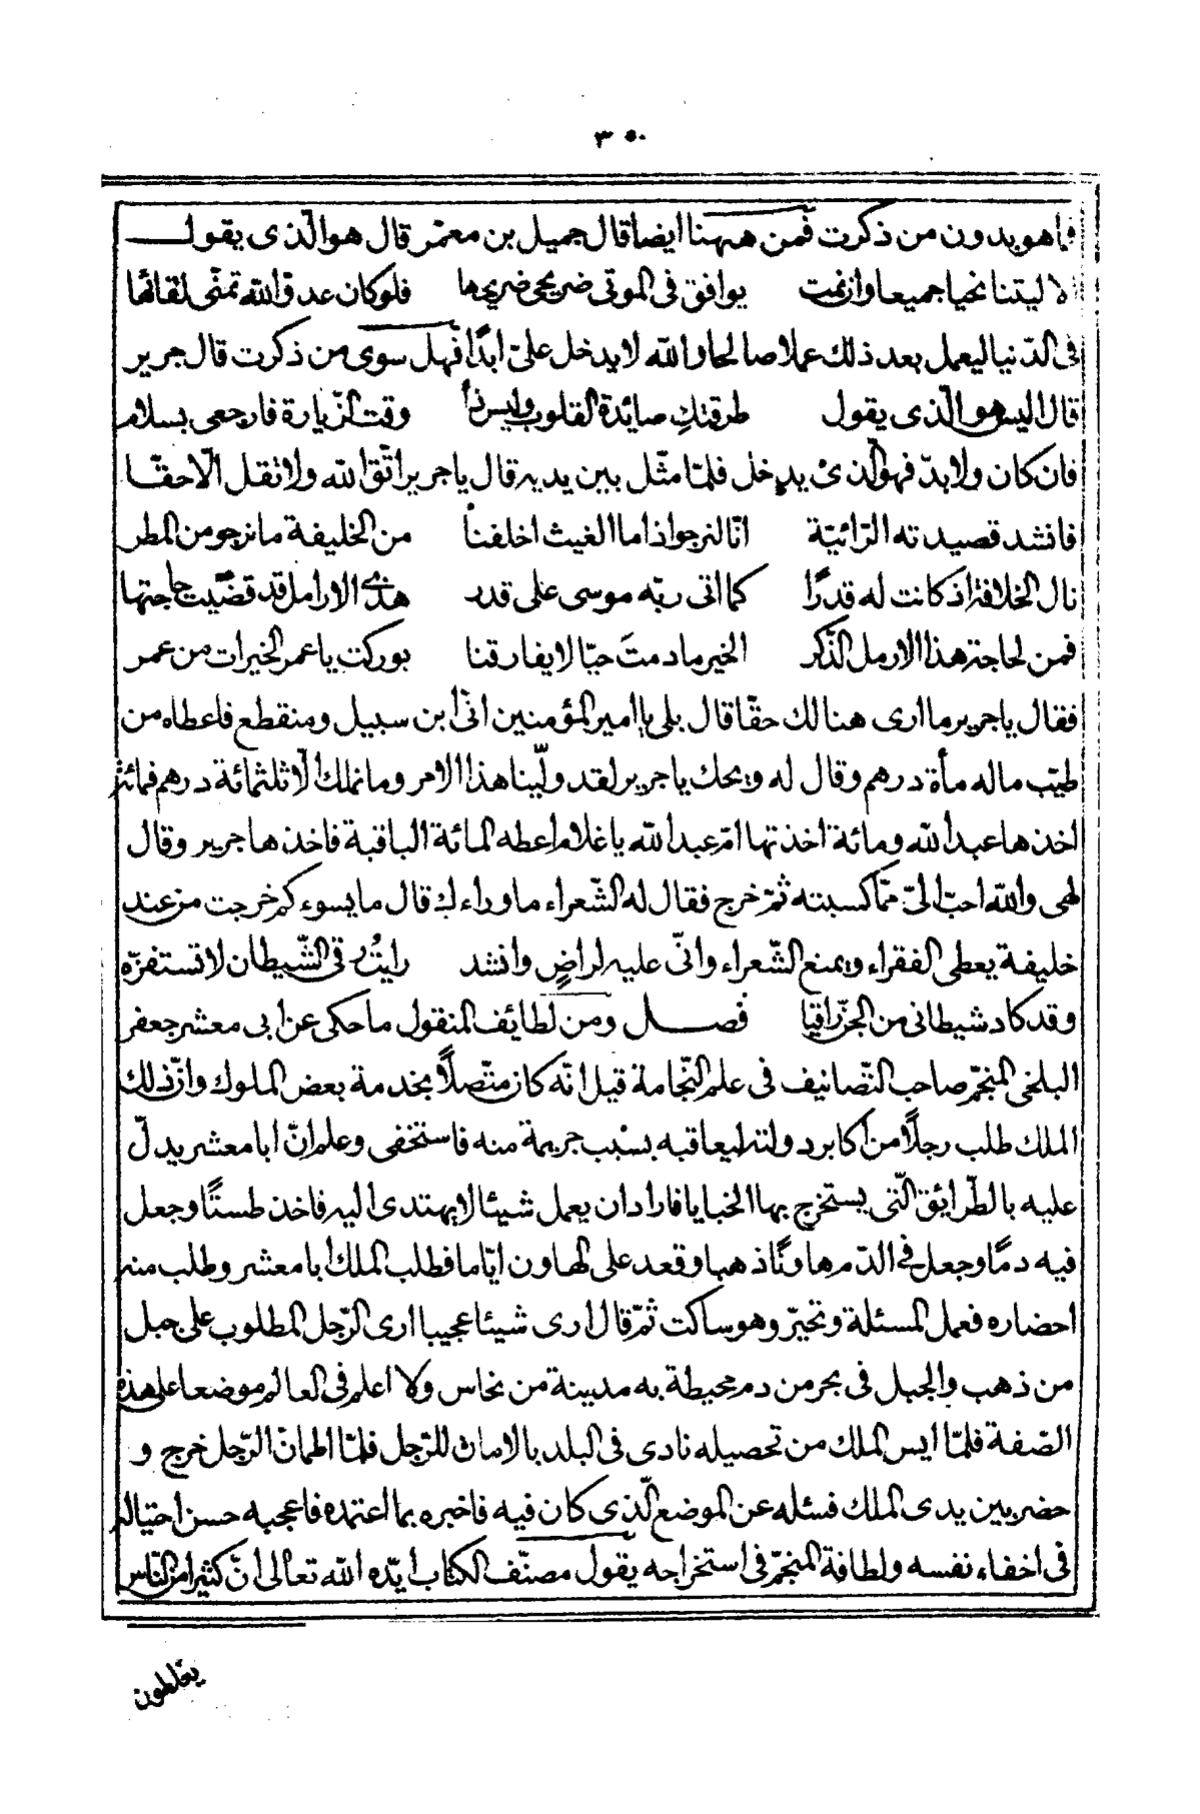 ٣٥٠
فما هو بدون من ذكرت فمن ههنا ايضا قال جميل بن معمر قال هو الّذى يقول
الا ليتنا نحيا جميعا وان نمت يوافق فى الموتى ضريحى ضريحها فلو كان عدوّ الله تمنّى لقائها
فى الدّنيا ليعمل بعد ذلك عملا صالحا والله لا يدخل علىّ ابدًا فهل سوى من ذكرت قال جرير
قال اليس هو الّذى يقول طرقتكِ صائدة القلوب وليس ذا وقت الزّيارة فارجعى بسلام
فان كان ولا بدّ فهو الّذى يدخل فلمّا مثّل بين يديه قال يا جرير اتّق الله ولا تقل الّا حقّا
فانشد قصيدته الرّائيّة انّا لنرجو اذا ما الغيث اخلفنا من الخليفة ما نرجو من المطر
نال الخلافة اذ كانت له قدرًا كما اتى ربّه موسى على قدر هذى الارامل قد قضّيت حاجتها
فمن لحاجة هذا الارمل الذّكر الخير ما دمتَ حيّا لا يفارقنا بوركت يا عمر الخيرات من عمر
فقال يا جرير ما ارى هنالك حقّا قال بلى يا امير المؤمنين انّى ابن سبيل ومنقطع فاعطاه من
طيّب ماله مأة درهم وقال له ويحك يا جرير لقد ولّينا هذا الامر وما نملك الّا ثلثمائة درهم فمائة
اخذها عبد الله ومائة اخذتها امّ عبد الله يا غلام اعطه المائة الباقية فاخذها جرير وقال
لهى والله احبّ الىّ ممّا كسبته ثمّ خرج فقال له الشّعراء ما وراءك قال ما يسوءكم خرجت من عند
خليفة يعطى الفقراء ويمنع الشّعراء وانّى عليه لراضٍ وانشد رايتُ رقى الشّيطان لا تستفزّه
وقد كاد شيطانى من الجزّ راقيا فصل ومن لطائف المنقول ما حكى عن ابى معشر جعفر
البلخى المنجّم صاحب التّصانيف فى علم النّجامة قيل انّه كان متّصلًا بخدمة بعض الملوك وانّ ذلك
الملك طلب رجلًا من اكابر دولته ليعاقبه بسبب جريمة منه فاستخفى وعلم انّ ابا معشر يدلّ
عليه بالطّرائق الّتى يستخرج بها الخبايا فاراد ان يعمل شيئا لا يهتدى اليه فاخذ طستًا وجعل
فيه دمًا وجعل فى الدّم هاونًا ذهبا وقعد على الهاون ايّاما فطلب الملك ابا معشر وطلب منه
احضاره فعمل المسئلة وتحيّر وهو ساكت ثمّ قال ارى شيئا عجيبا ارى الرّجل المطلوب على جبل
من ذهب والجبل فى بحر من دم محيطة به مدينة من نحاس ولا اعلم فى العالم موضعا على هذه
الصّفة فلمّا ايس الملك من تحصيله نادى فى البلد بالامان للرّجل فلمّا اطمانّ الرّجل خرج و
حضر بين يدى الملك فسئله عن الموضع الّذى كان فيه فاخبره بما اعتمده فاعجبه حسن احتياله
فى اخفاء نفسه ولطافة المنجّم فى استخراجه يقول مصنّف الكتاب ايّده الله تعالى انّ كثيرا من النّاس
يغلطون